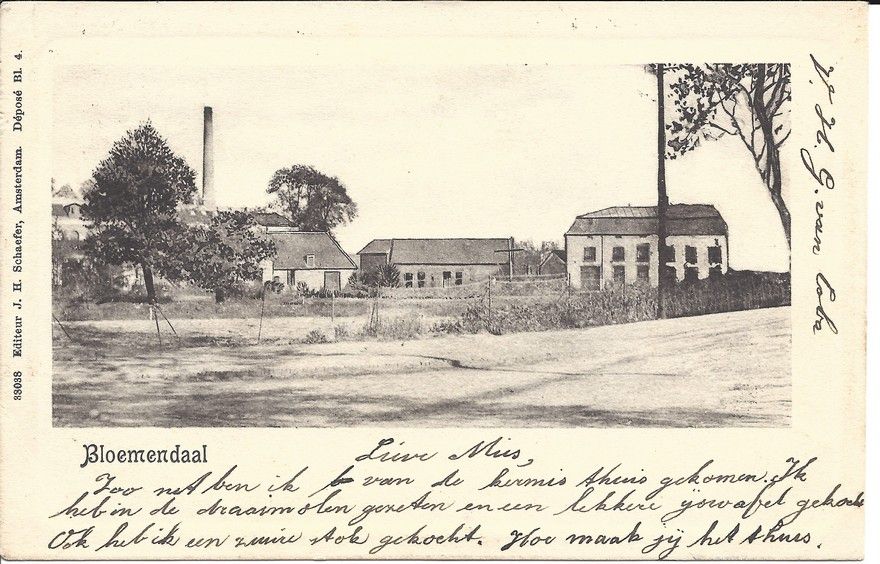 33038 Editeur J. H. Schaefer, Amsterdam. Déposé Bl. 4.
Bloemendaal
Lieve Mies,
Zoo net ben ik van de kermis thuis gekomen. Ik
heb in de draaimolen gezeten en een lekkere ijswafel gekocht
Ook heb ik een zuure stok gekocht. Hoe maak jij het thuis.
H. G. van